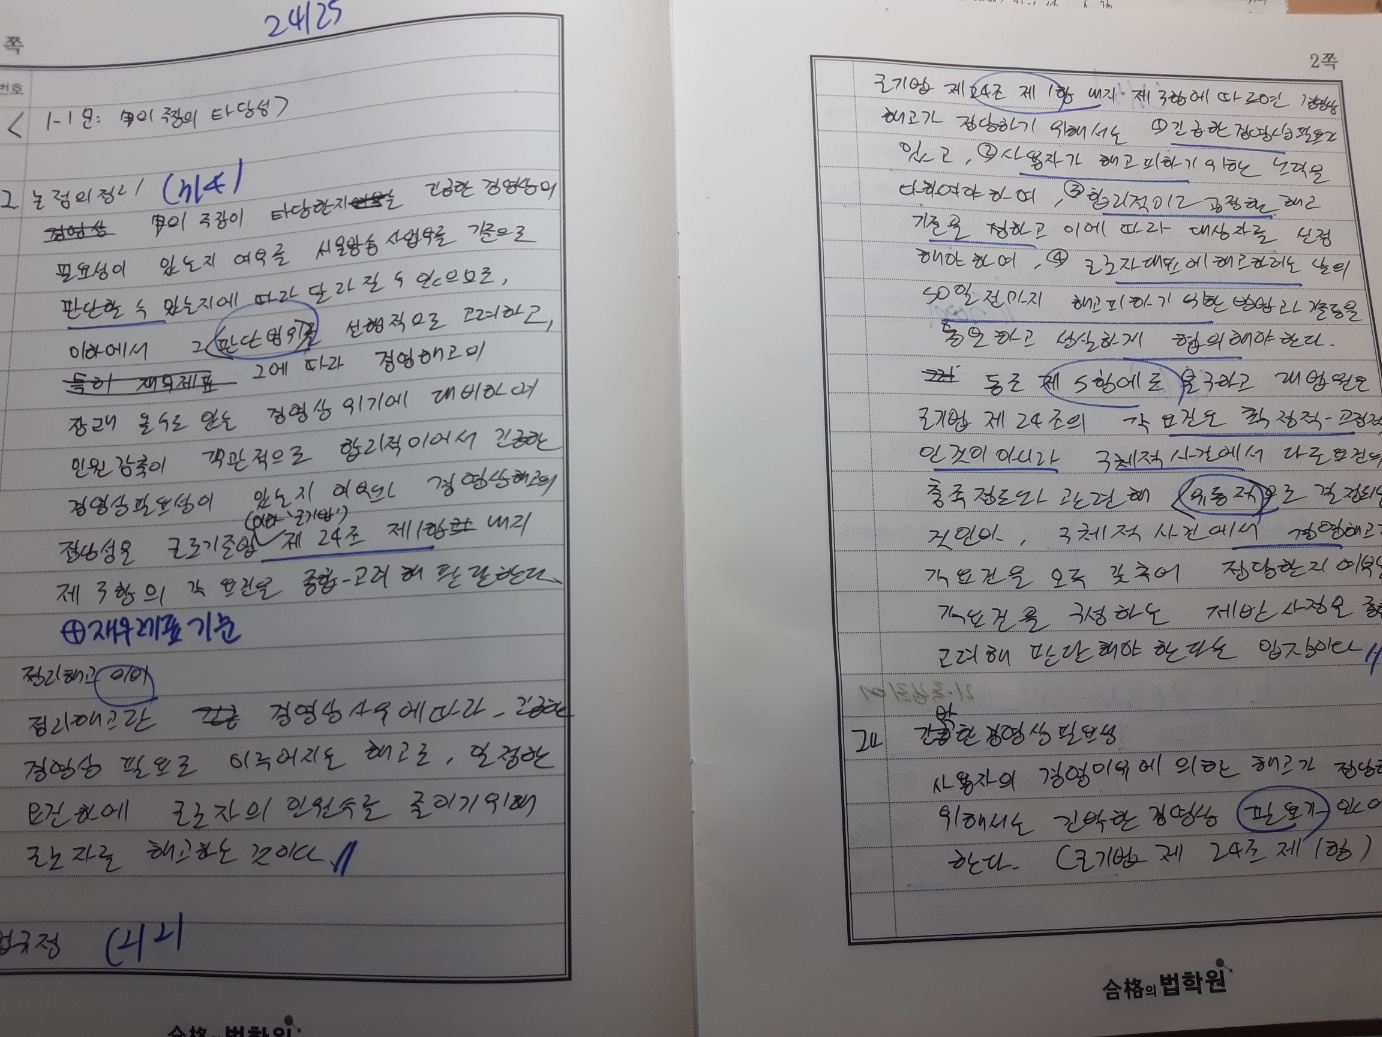 24/25
쪽
번호
< 1-1문: 甲의 주장의 타당성>
논점의 정리 (4/4)
경영상 甲의 주장이 타당한지 여부는 긴급한 경영상의
필요성이 있는지 여부를 사업부를 기준으로
판단할 수 있는지에 따라 달라질 수 있으므로,
이하에서 그 판단범위를 선행적으로 고려하고,
특히 재무제표 그에 따라 경영해고의
장래 올 수도 있는 경영상 위기에 대비하여
인원감축이 객관적으로 합리적이어서 긴급한
경영상 필요성이 있는지 여부와 경영상해고의
(이하 '근기법')
정당성은 근로기준법 제 24조 제1항 내지
제 3항의 각 요건을 종합-고려해 판단한다.
⊕재무제표 기준
정리해고 의의
정리해고란 긴급 경영상 사유에 따라 긴급한
경영상 필요로 이루어지는 해고로, 일정한
요건하에 근로자의 인원수를 줄이기 위해
근로자를 해고하는 것이다.
법규정 (2/2)
合格의 법학원
2쪽
근기법 제24조 제1항 내지 제3항에 따르면 경영상
해고가 정당하기 위해서는 ①긴급한 경영상 필요가
있고, ②사용자가 해고 피하기 위한 노력을
다하여야 하며, ③합리적이고 공정한 해고
기준을 정하고 이에 따라 대상자를 선정
해야 하며, ④ 근로자대표에 해고하려는 날의
50일 전까지 해고 피하기 위한 방법과 기준등을
통보하고 성실하게 협의해야 한다.
동조 제5항에도 불구하고 대법원은
근기법 제 24조의 각 요건은 확정적-고정적
인 것이 아니라 구체적 사건에서 다른 요건의
충족 정도와 관련해 유동적으로 결정되는
것인바, 구체적 사건에서 경영해고가
각 요건을 모두 갖추어 정당한지 여부는
각 요건을 구성하는 제반사정을 종합
고려해 판단해야 한다는 입장이다.
긴박한 경영상 필요성
사용자의 경영이유에 의한 해고가 정당하
위해서는 긴박한 경영상 필요가 있어
한다. (근기법 제 24조 제1항)
合格의 법학원